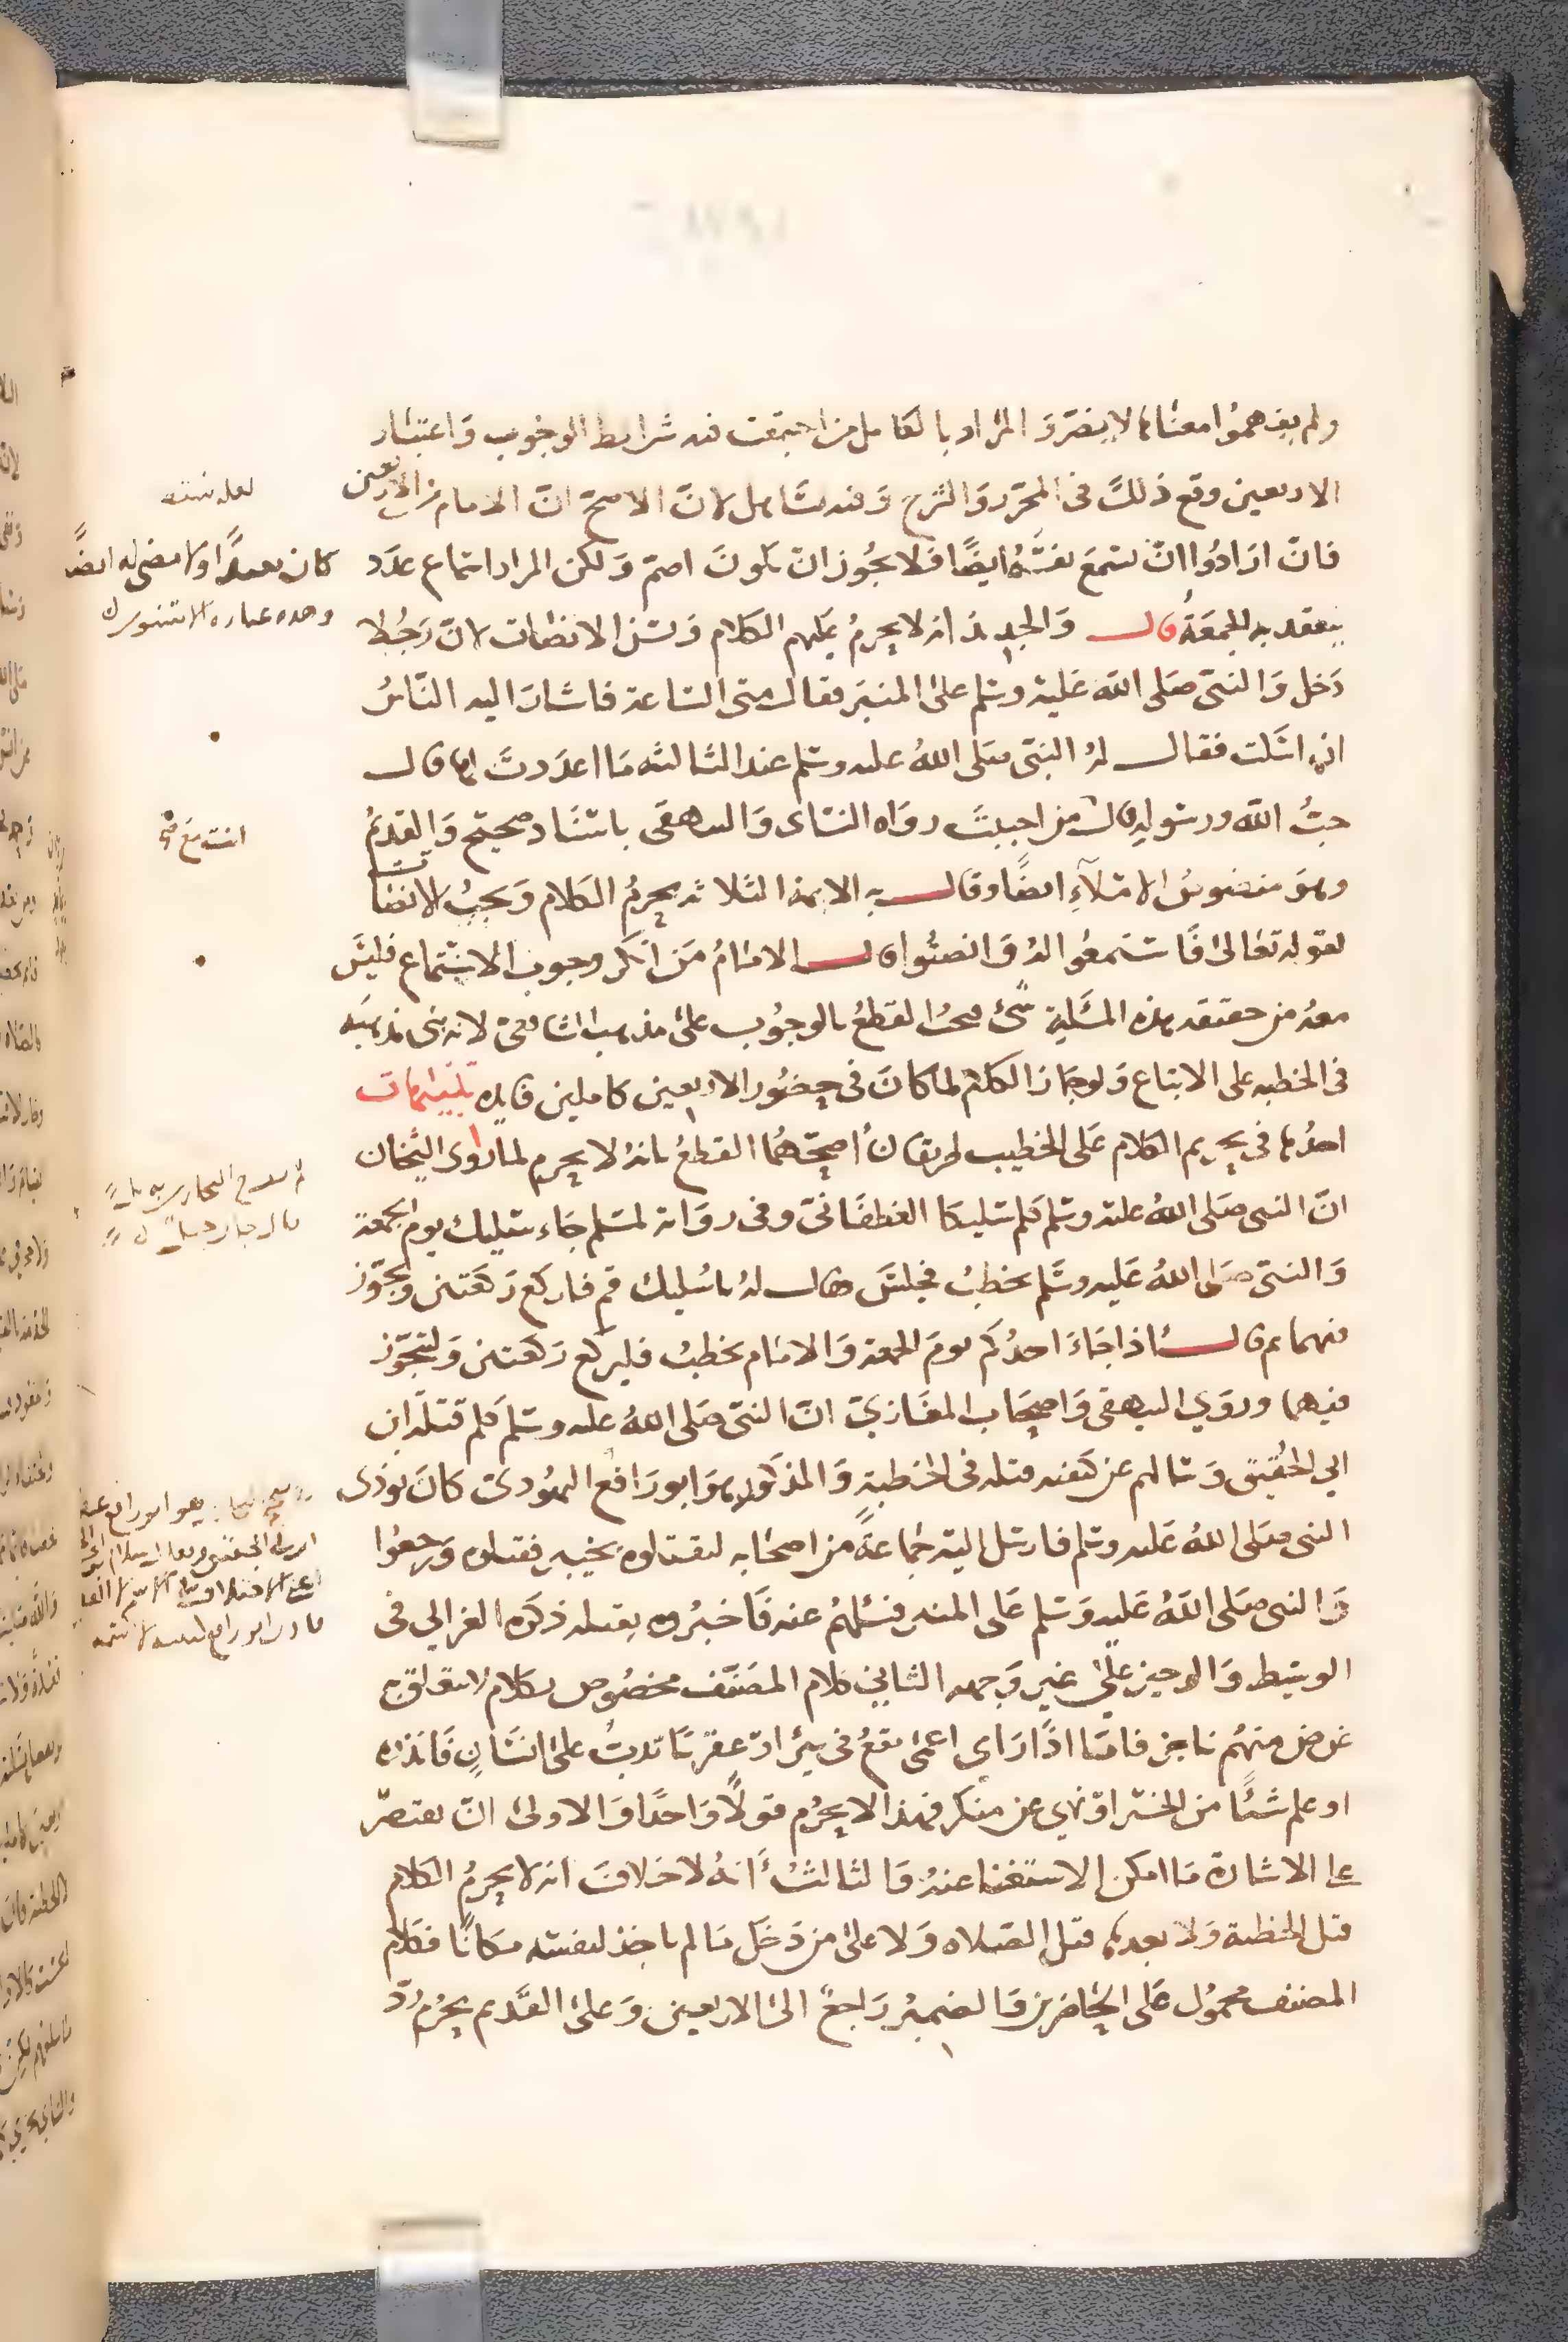 ولم يفهموا معناها لا يضر والمراد بالكامل من اجتمعت فيه شرايط الوجوب واعتبار
الاربعين وقع ذلك في المحرر والشرح وفيه تساهل لان الاصح ان الامام من الاربعين
فان ارادوا ان يسمع نفسه ايضا فلا يجوز ان يكون اصم ولكن المراد اسماع عدد
ينعقد به الجمعة قال والجديد انه لا يحرم عليهم الكلام ويسن الانصات لان رجلا
دخل والنبي صلى الله عليه وسلم على المنبر فقال متى الساعة فاشار اليه الناس
ان اسكت فقال له النبي صلى الله عليه وسلم عند الثالثه ما اعددت لها قال
حب الله ورسوله قال من احببت رواه النساى والبيهقى باسناد صحيح والقديم
وهو منصوص الاملآء ايضا وقال به الايمة الثلاثه يحرم الكلام ويجب الانصات
لقوله تعالى فاستمعوا له وانصتوا قال الامام من انكر وجوب الاستماع فليس
معه من حقيقه هذه المسئلة شئ والقطع بالوجوب على مذهب الشافعي لانه بنى مذهبه
في الخطبه على الاتباع ولو جاز الكلام لما كان في حضور الاربعين كاملين فايده تنبيهات
احدها في تحريم الكلام على الخطيب طريقان أصحهما القطع بانه لا يحرم لما روى الشيخان
ان النبى صلى الله عليه وسلم كلم سليكا الغطفانى وفى رواية لمسلم جاء سليك يوم الجمعة
والنبي صلى الله عليه وسلم يخطب فجلس فقال له يا سليك قم فاركع ركعتين وتجوز
فيهما ثم قال اذا جاء احدكم يوم الجمعة والامام يخطب فليركع ركعتين وليتجوز
فيهما وروي البيهقى واصحاب المغازي ان النبي صلى الله عليه وسلم كلم قتلة ابن
ابي الحقيق وسالهم عن كيفيه قتله في الخطبة والمذكور هو ابو رافع اليهودى كان يوذى
النبي صلى الله عليه وسلم فارسل اليه جماعة من اصحابه ليقتلوه بخيبر فقتلوه ورجعوا
والنبي صلى الله عليه وسلم على المنبر فسئلهم عنه فاخبروه بقتله ذكره الغزالي في
الوسيط والوجيز على غير وجهه الثاني كلام المصنف مخصوص بكلام لا يتعلق به
غرض منهم ناجز فاما اذا راى اعمى يقع في بئر او عقربا تدب على انسان فانذره
او علم شئا من الخير او نهي عن منكر فهذا لا يحرم قولا واحدا والاولى ان يقتصر
على الاشارة ما امكن الاستغنا عنه والثالث أنه لا خلاف انه لا يحرم الكلام
قبل الخطبة ولا بعدها قبل الصلاه ولا على من دخل ما لم ياخذ لنفسه مكانا فكلام
المصنف محمول على الحاضرين والضمير راجع الى الاربعين وعلى القديم يحرم رد
لعله نسيه
وهذه عبارة الاسنوى
انت مع صح